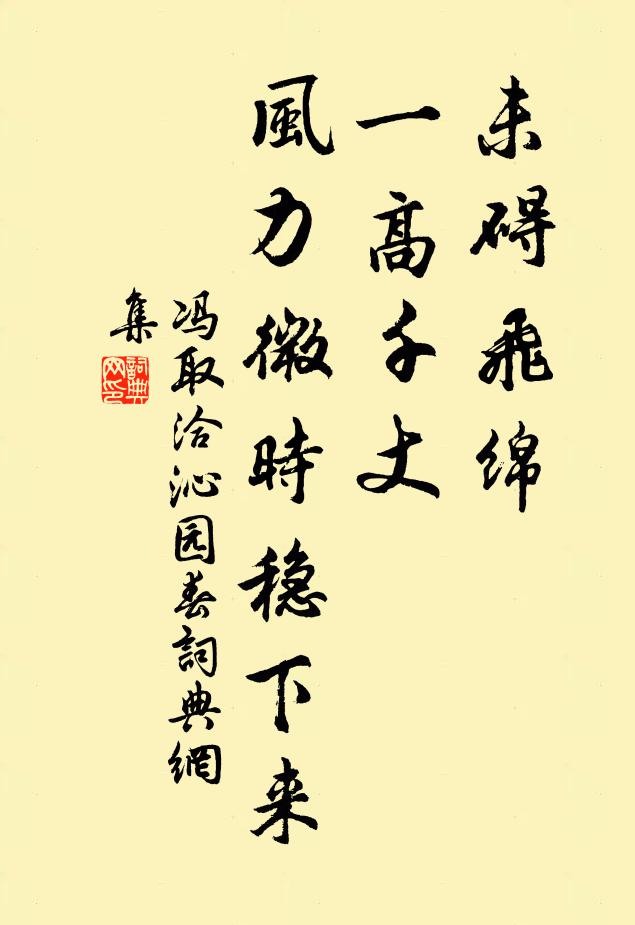 未碍飛绵
一高千丈
風力微時稳下来
冯取洽沁园春詞典網
集
詞典網印